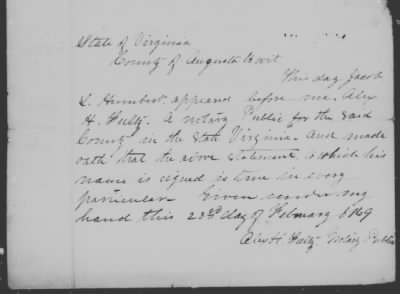 State of Virginia
County of Augusta to wit
This day Jacob
L. Humbert appeared before me Alex
H. Fultz. A notary Public for the said
County in the State Virginia. And made
oath that the above statement, to which his
name is signed is true in every
particular. Given under my
hand this 23rd day of February 1869
Alex H. Fultz Notary Public